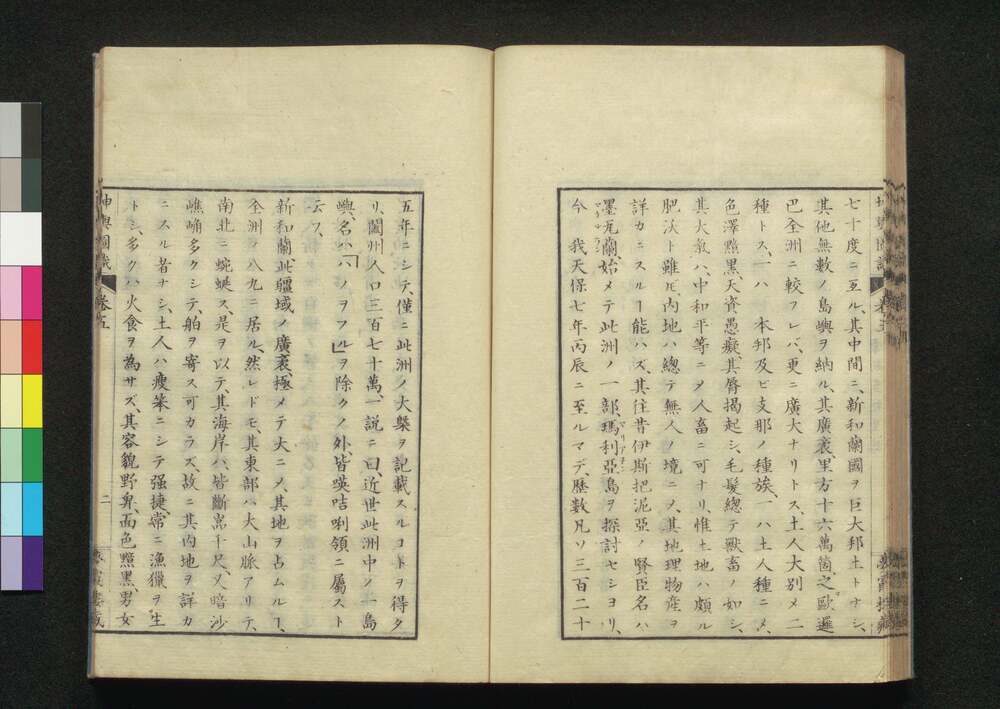 七十度ニ亙ル、其中間ニ、新和蘭國ヲ巨大邦土トナシ、
其他無數ノ島嶼ヲ納ル、其廣袤、里方十六萬箇、之ヲ歐邏
巴全洲ニ較フレバ、更ニ廣大ナリトス、土人大別メ二
種トス、一ハ 本邦及ビ支那ノ種族、一ハ土人種ニメ、
色澤黯黑、天資愚癡、其脣揭起シ、毛髮總テ獸畜ノ如シ、
其大氣ハ、中和平等ニメ人畜ニ可ナリ、惟土地ハ頗ル
肥沃ト雖ヒ、内地ハ總テ無人ノ境ニメ、其地理物産ヲ
詳カニスルヿ能ハズ、其往昔伊斯把泥亞ノ賢臣名ハ
墨瓦蘭、始メテ此洲ノ一部、瑪利亞島ヲ探討セシヨリ、
今 我天保七年丙辰ニ至ルマデ、歴數凡ソ三百二十
五年ニシテ、僅ニ此洲ノ大槩ヲ記載スルコトヲ得タ
リ、闔州人口三百七十萬、一說ニ曰、近世此洲中ノ一島
嶼、名ハ「ノヲフル」ヲ除クノ外、皆暎咭唎領ニ屬スト
云フ、
新和蘭、此疆域ノ廣袤、極メテ大ニメ、其地ヲ占ムルヿ、
全洲ノ八九ニ居ル、然レドモ、其東部ハ大山脈アリテ、
南北ニ蜿蜒ス、是ヲ以テ、其海岸ハ、皆斷崇千尺、又暗沙
嶕崅多クシテ、舶ヲ寄ス可カラズ、故ニ其内地ヲ詳カ
ニスル者ナシ、土人ハ瘦笨ニシテ强捷、常ニ漁獵ヲ生
トシ、多クハ火食ヲ為サズ、其容貌野卑、面色黯黑、男女
坤輿圖識
卷五
二